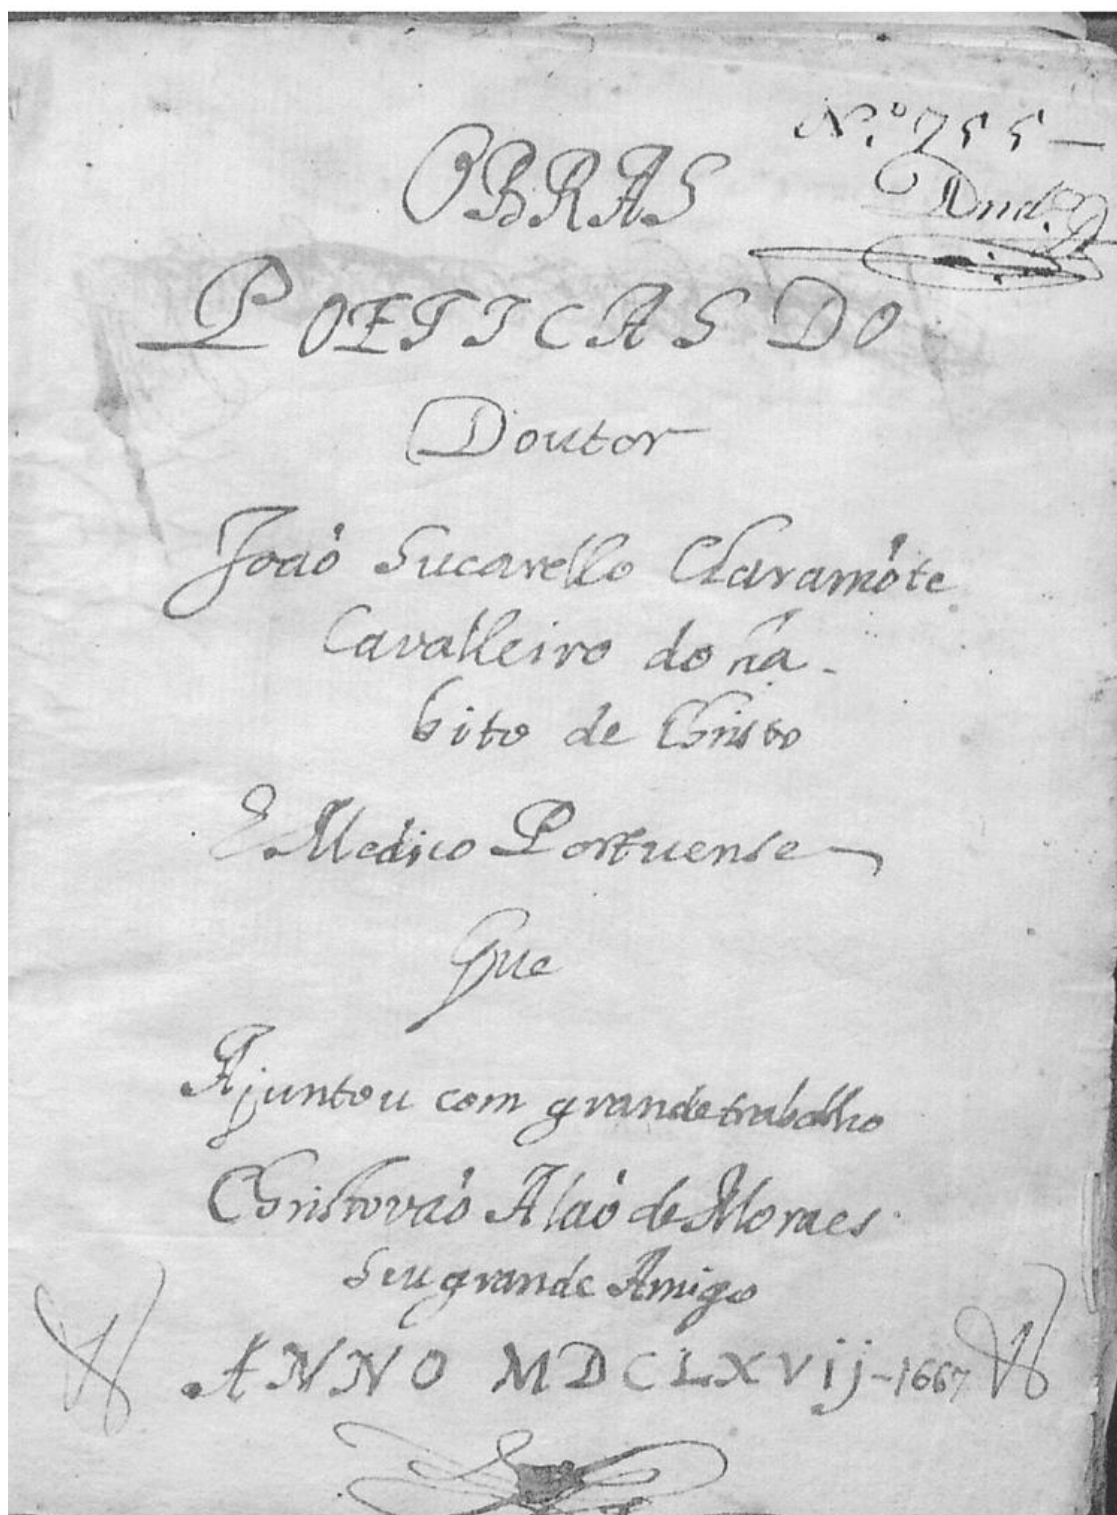 N.º 755 —
OBRAS
POETICAS DO
Doutor
Joaõ Sucarello Claramõte
Cavalleiro do ha-
bito de Christo
E Medico Portuense
Que
Ajuntou com grande trabalho
Christovaõ Alaõ de Moraes
Seu grande Amigo
ANNO MDCLXVIJ-1667